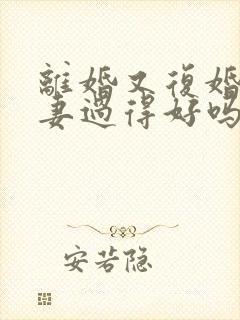 離婚又復婚
妻過得好嗎
安若隐